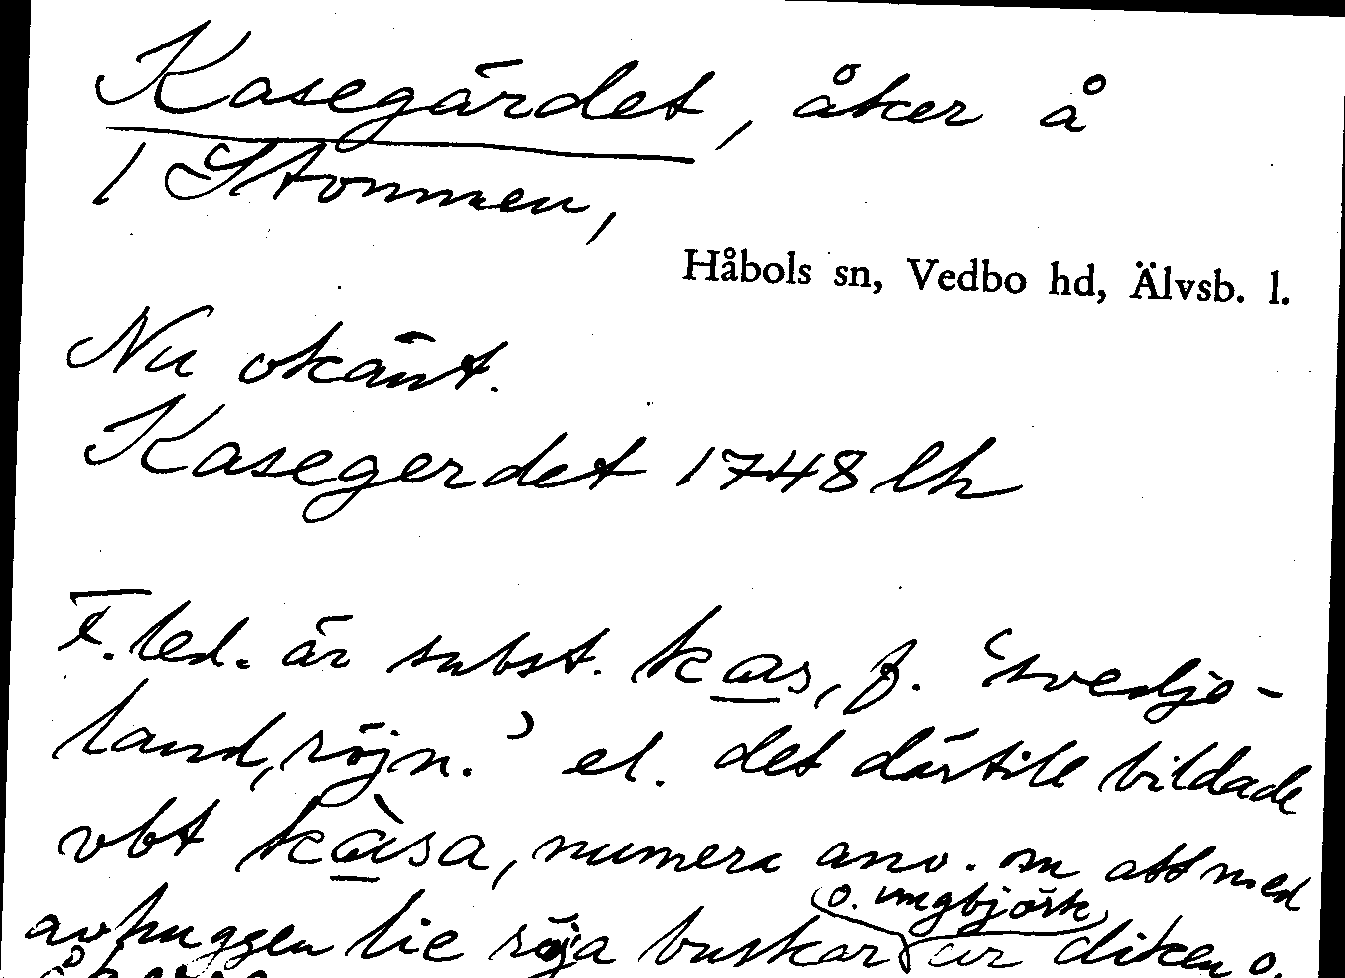 Kasegärdet, åker å
1 Stommen,
Håbols sn, Vedbo hd, Älvsb. l.
Nu okänt.
Kasegerdet 1748 lh
F.led. är subst. kas, f. 'svedje-
land, röjn.' el. det därtill bildade
vbt kàsa, numera anv. om att med
o. ungbjörk
avhuggen lie röja buskar ur diken o.